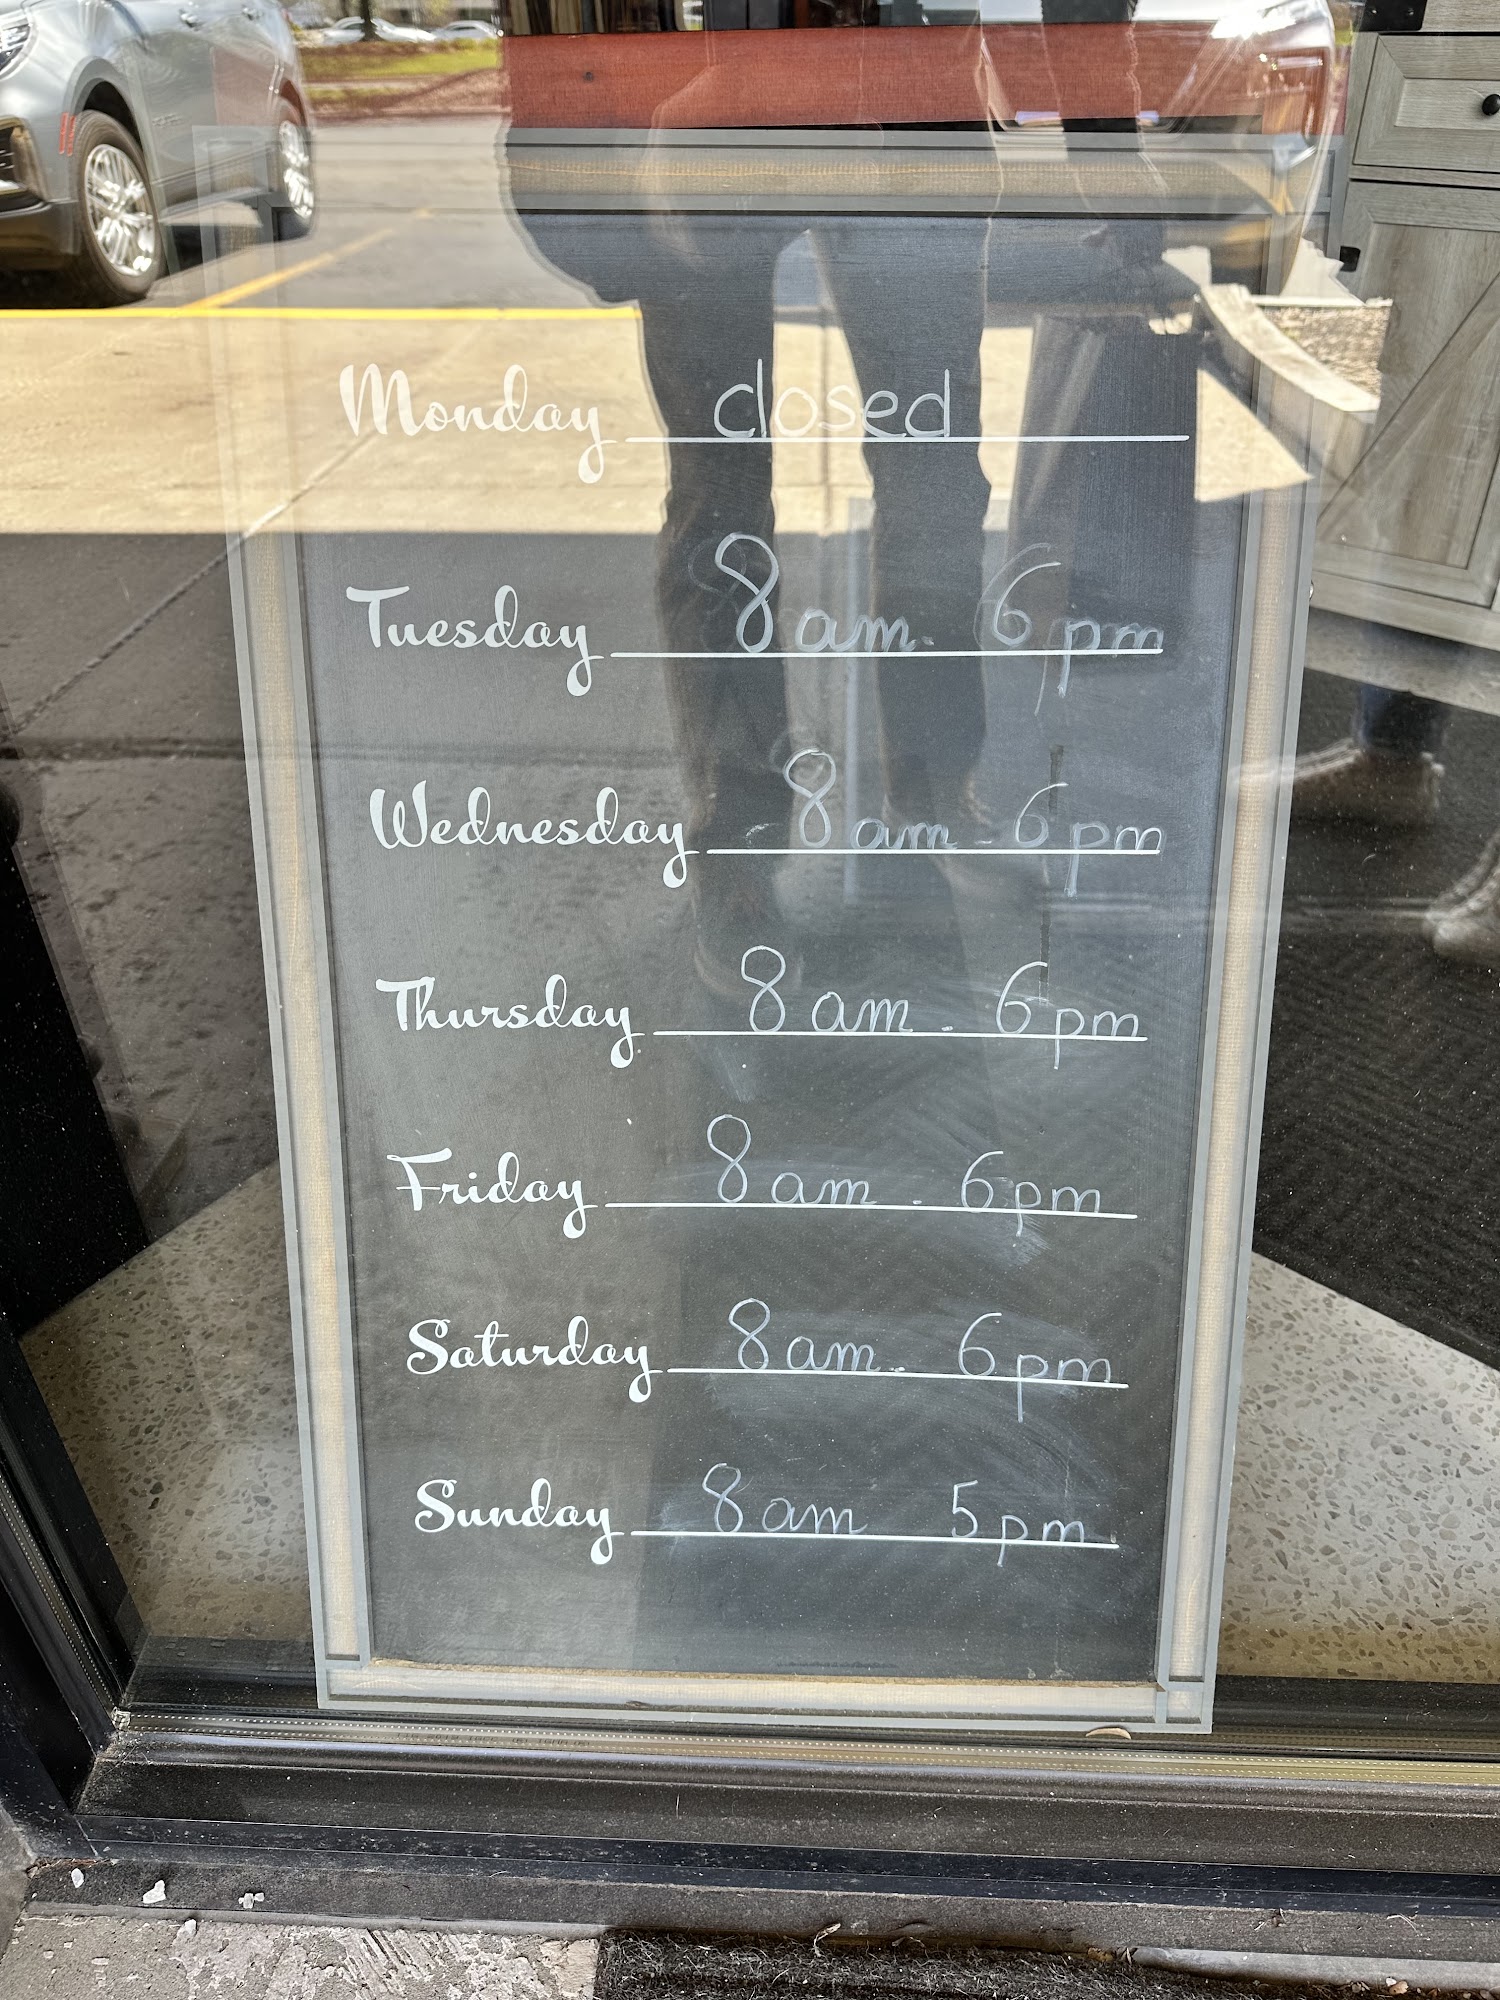 Monday closed
Tuesday 8 am - 6 pm
Wednesday 8 am - 6 pm
Thursday 8 am - 6 pm
Friday 8 am - 6 pm
Saturday 8 am - 6 pm
Sunday 8 am 5 pm